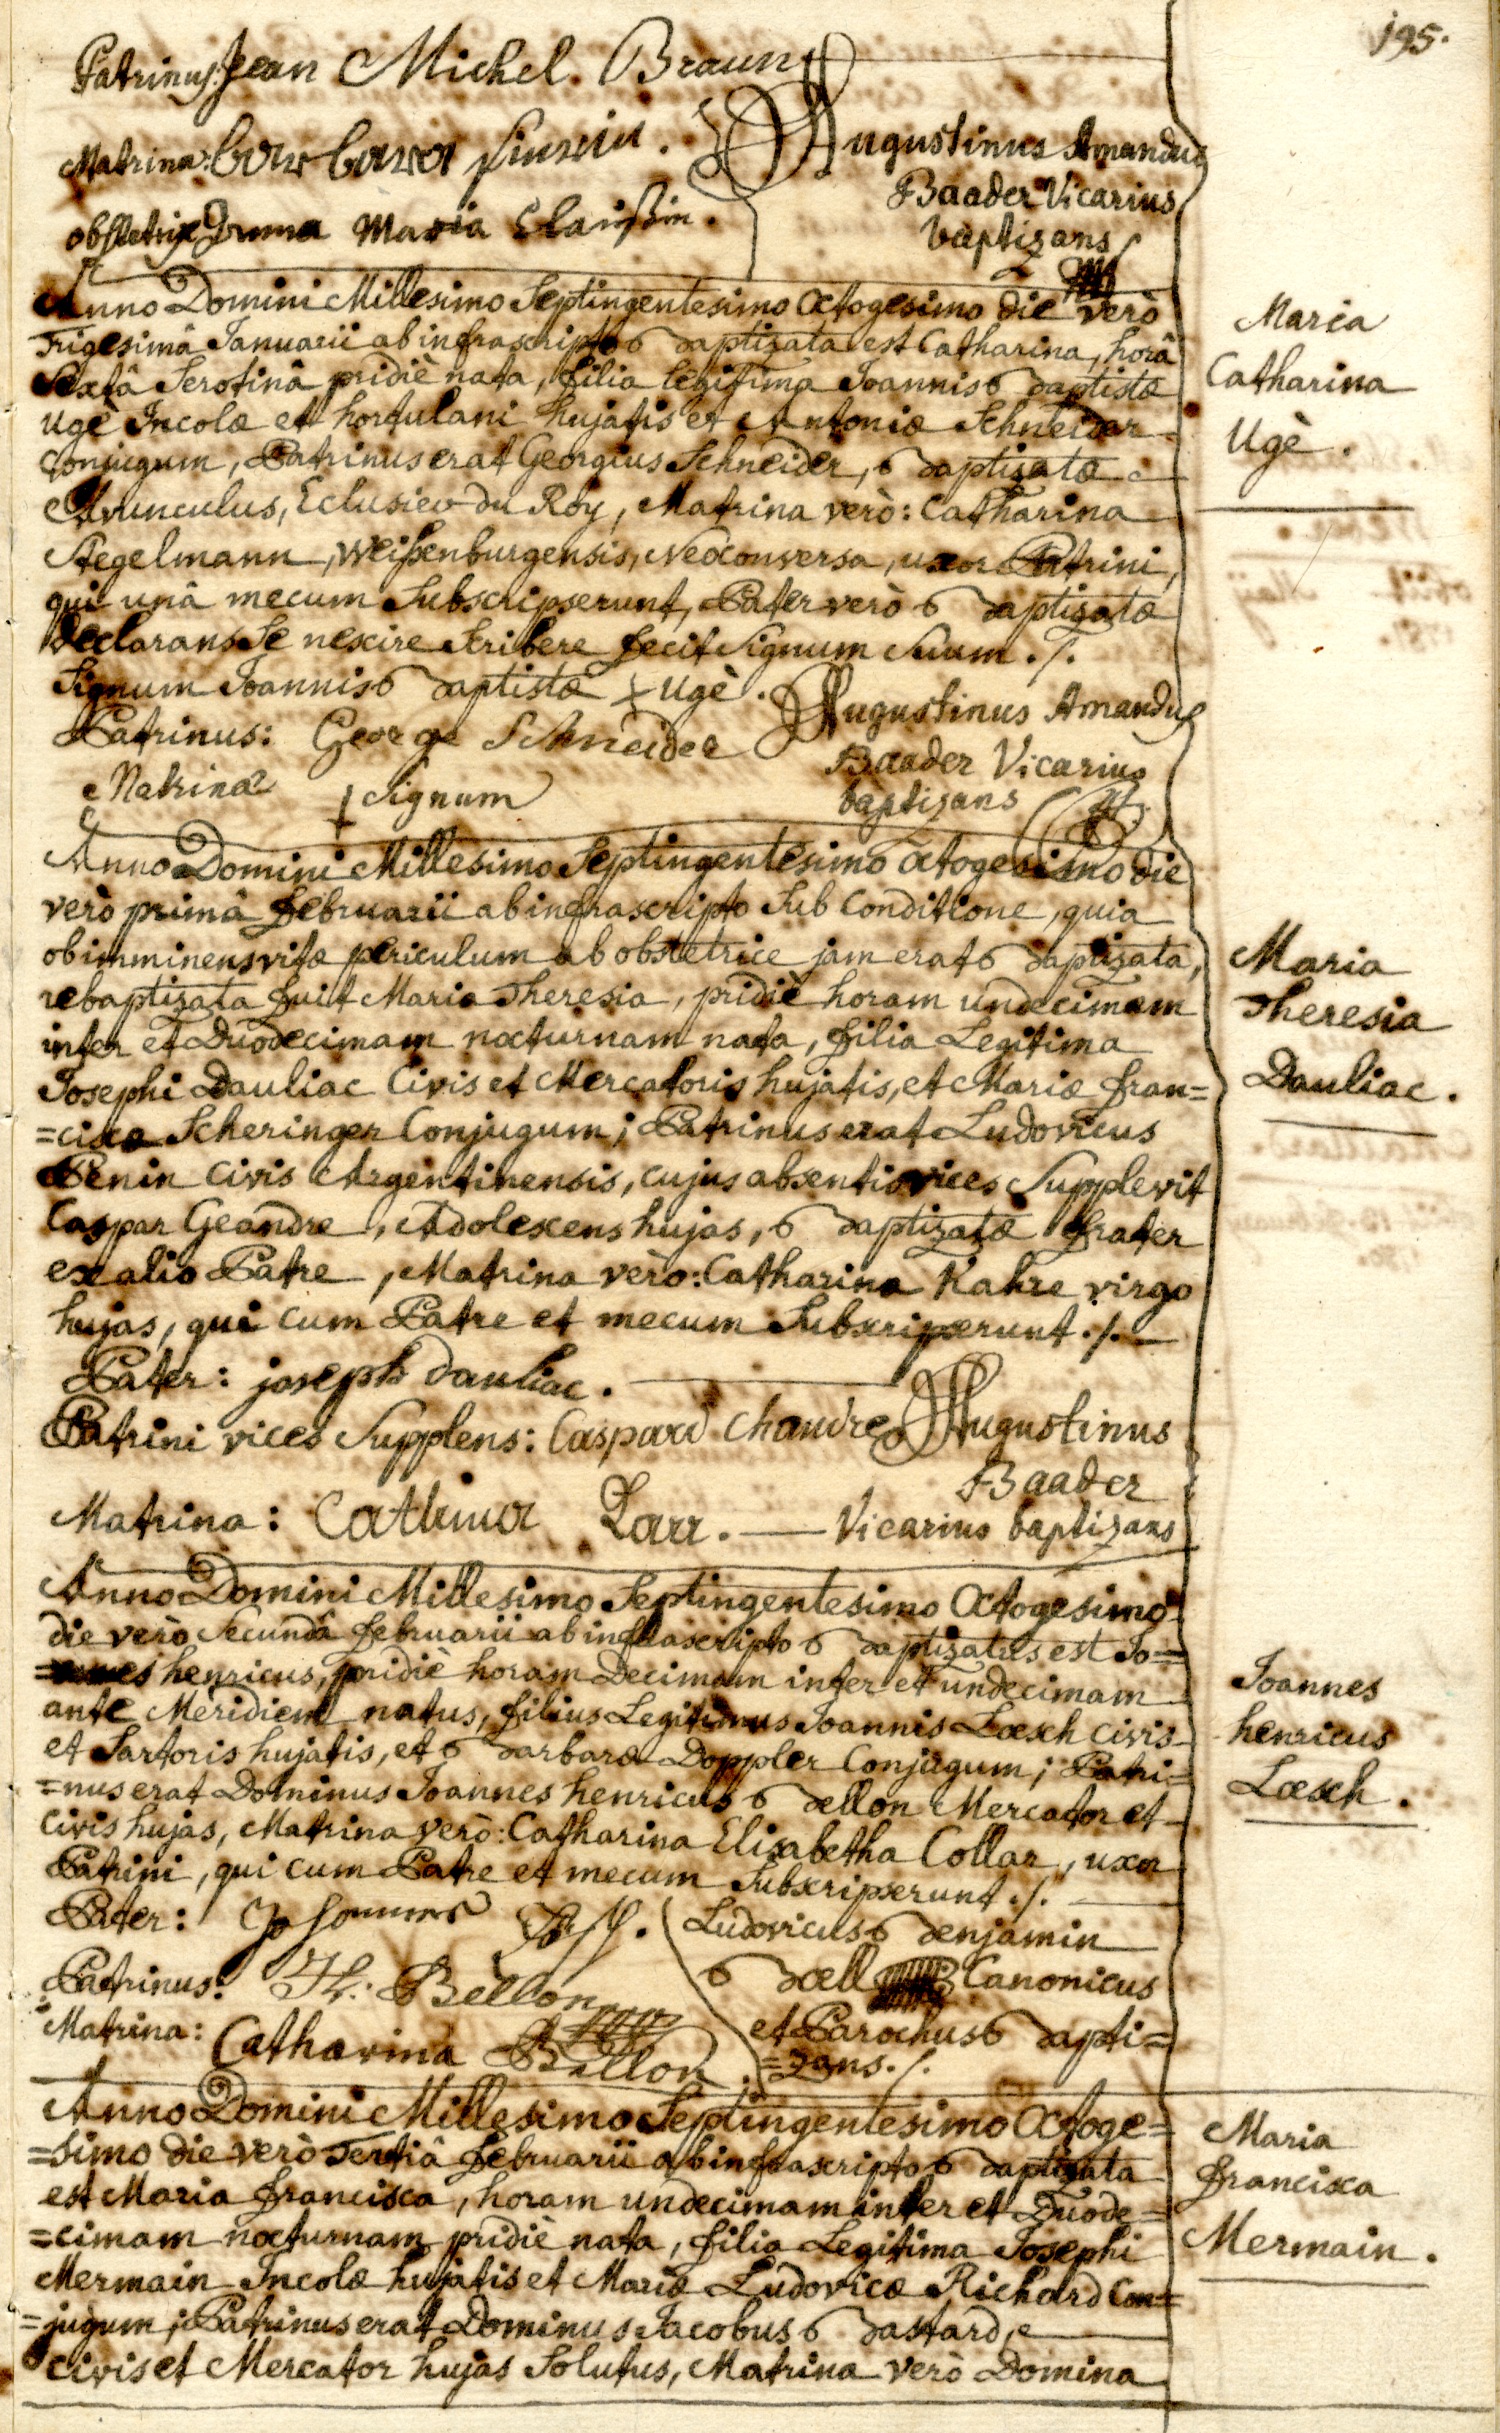 195.
Patrinus: Jean Michel Braun
Matrina: barbara
obstetrix Anna Maria
Augustinus Amandus
Baader Vicarius
baptizans
Anno Domini Millesimo Septingentesimo Octogesimo die verò
Trigesimâ Januarii ab infrascripto Baptizata est Catharina, horâ
Sextâ Serotinâ pridiè nata, filia legitima Joannis Baptistæ
Ugè Incolæ et hortulani hujatis et Antoniæ Schneider
Conjugum, Patrinus erat Georgius Schneider, Baptizatæ
Avunculus, Eclusier du Roy, Matrina verò: Catharina
Stegelmann, Weißenburgensis, Neoconversa, uxor Patrini,
qui unâ mecum Subscripserunt, Pater verò Baptizatæ
declarans Se nescire Scribere fecit Signum Suum ./.
Signum Joannis Baptistæ + Ugè.
Patrinus: George Schneider
Matrina + Signum
Augustinus Amandus
Baader Vicarius
baptizans
Maria
Catharina
Ugè.
Anno Domini Millesimo Septingentesimo Octogesimo die
verò primâ Februarii ab infrascripto Sub Conditione, quia
ob imminens vitæ periculum ab obstetrice jam erat Baptizata,
rebaptizata fuit Maria Theresia, pridiè horam undecimam
inter et Duodecimam nocturnam nata, filia Legitima
Josephi Dauliac Civis et Mercatoris hujatis, et Mariæ Fran=
=ciscæ Scheringer Conjugum; Patrinus erat Ludovicus
Penin Civis Argentinensis, cujus absentis vices Supplevit
Caspar Geandre, Adolescens hujas, Baptizatæ frater
ex alio Patre, Matrina verò: Catharina Kahre virgo
hujas, qui cum Patre et mecum Subscripserunt ./.
Pater: joseph dauliac.
Patrini vices Supplens: Caspard Chandre
Matrina:
Augustinus
Baader
Vicarius baptizans
Maria
Theresia
Dauliac.
Anno Domini Millesimo Septingentesimo Octogesimo
die verò Secundâ Februarii ab infrascripto Baptizatus est Jo=
=annes henricus, pridiè horam Decimam inter et undecimam
ante Meridiem natus, filius Legitimus Joannis Lœsch Civis
et Sartoris hujatis, et Barbaræ Doppler Conjugum; Patri=
=nus erat Dominus Joannes henricus Bellon Mercator et
Civis hujas, Matrina verò: Catharina Elisabetha Collar, uxor
Patrini, qui cum Patre et mecum Subscripserunt ./.
Pater: Johannes
Patrinus: H: Bellon
Matrina: Catharina Bellon
Ludovicus Benjamin
Canonicus
et Parochus Bapti=
=zans ./.
Joannes
henricus
Lœsch.
Anno Domini Millesimo Septingentesimo Octoge=
=simo die verò Tertiâ Februarii ab infrascripto Baptizata
est Maria Francisca, horam undecimam inter et Duode=
=cimam nocturnam pridiè nata, filia Legitima Josephi
Mermain Incolæ hujatis et Mariæ Ludovicæ Richard Con=
=jugum; Patrinus erat Dominus Jacobus Bastard,
Civis et Mercator hujas Solutus, Matrina verò Domina
Maria
Francisca
Mermain.